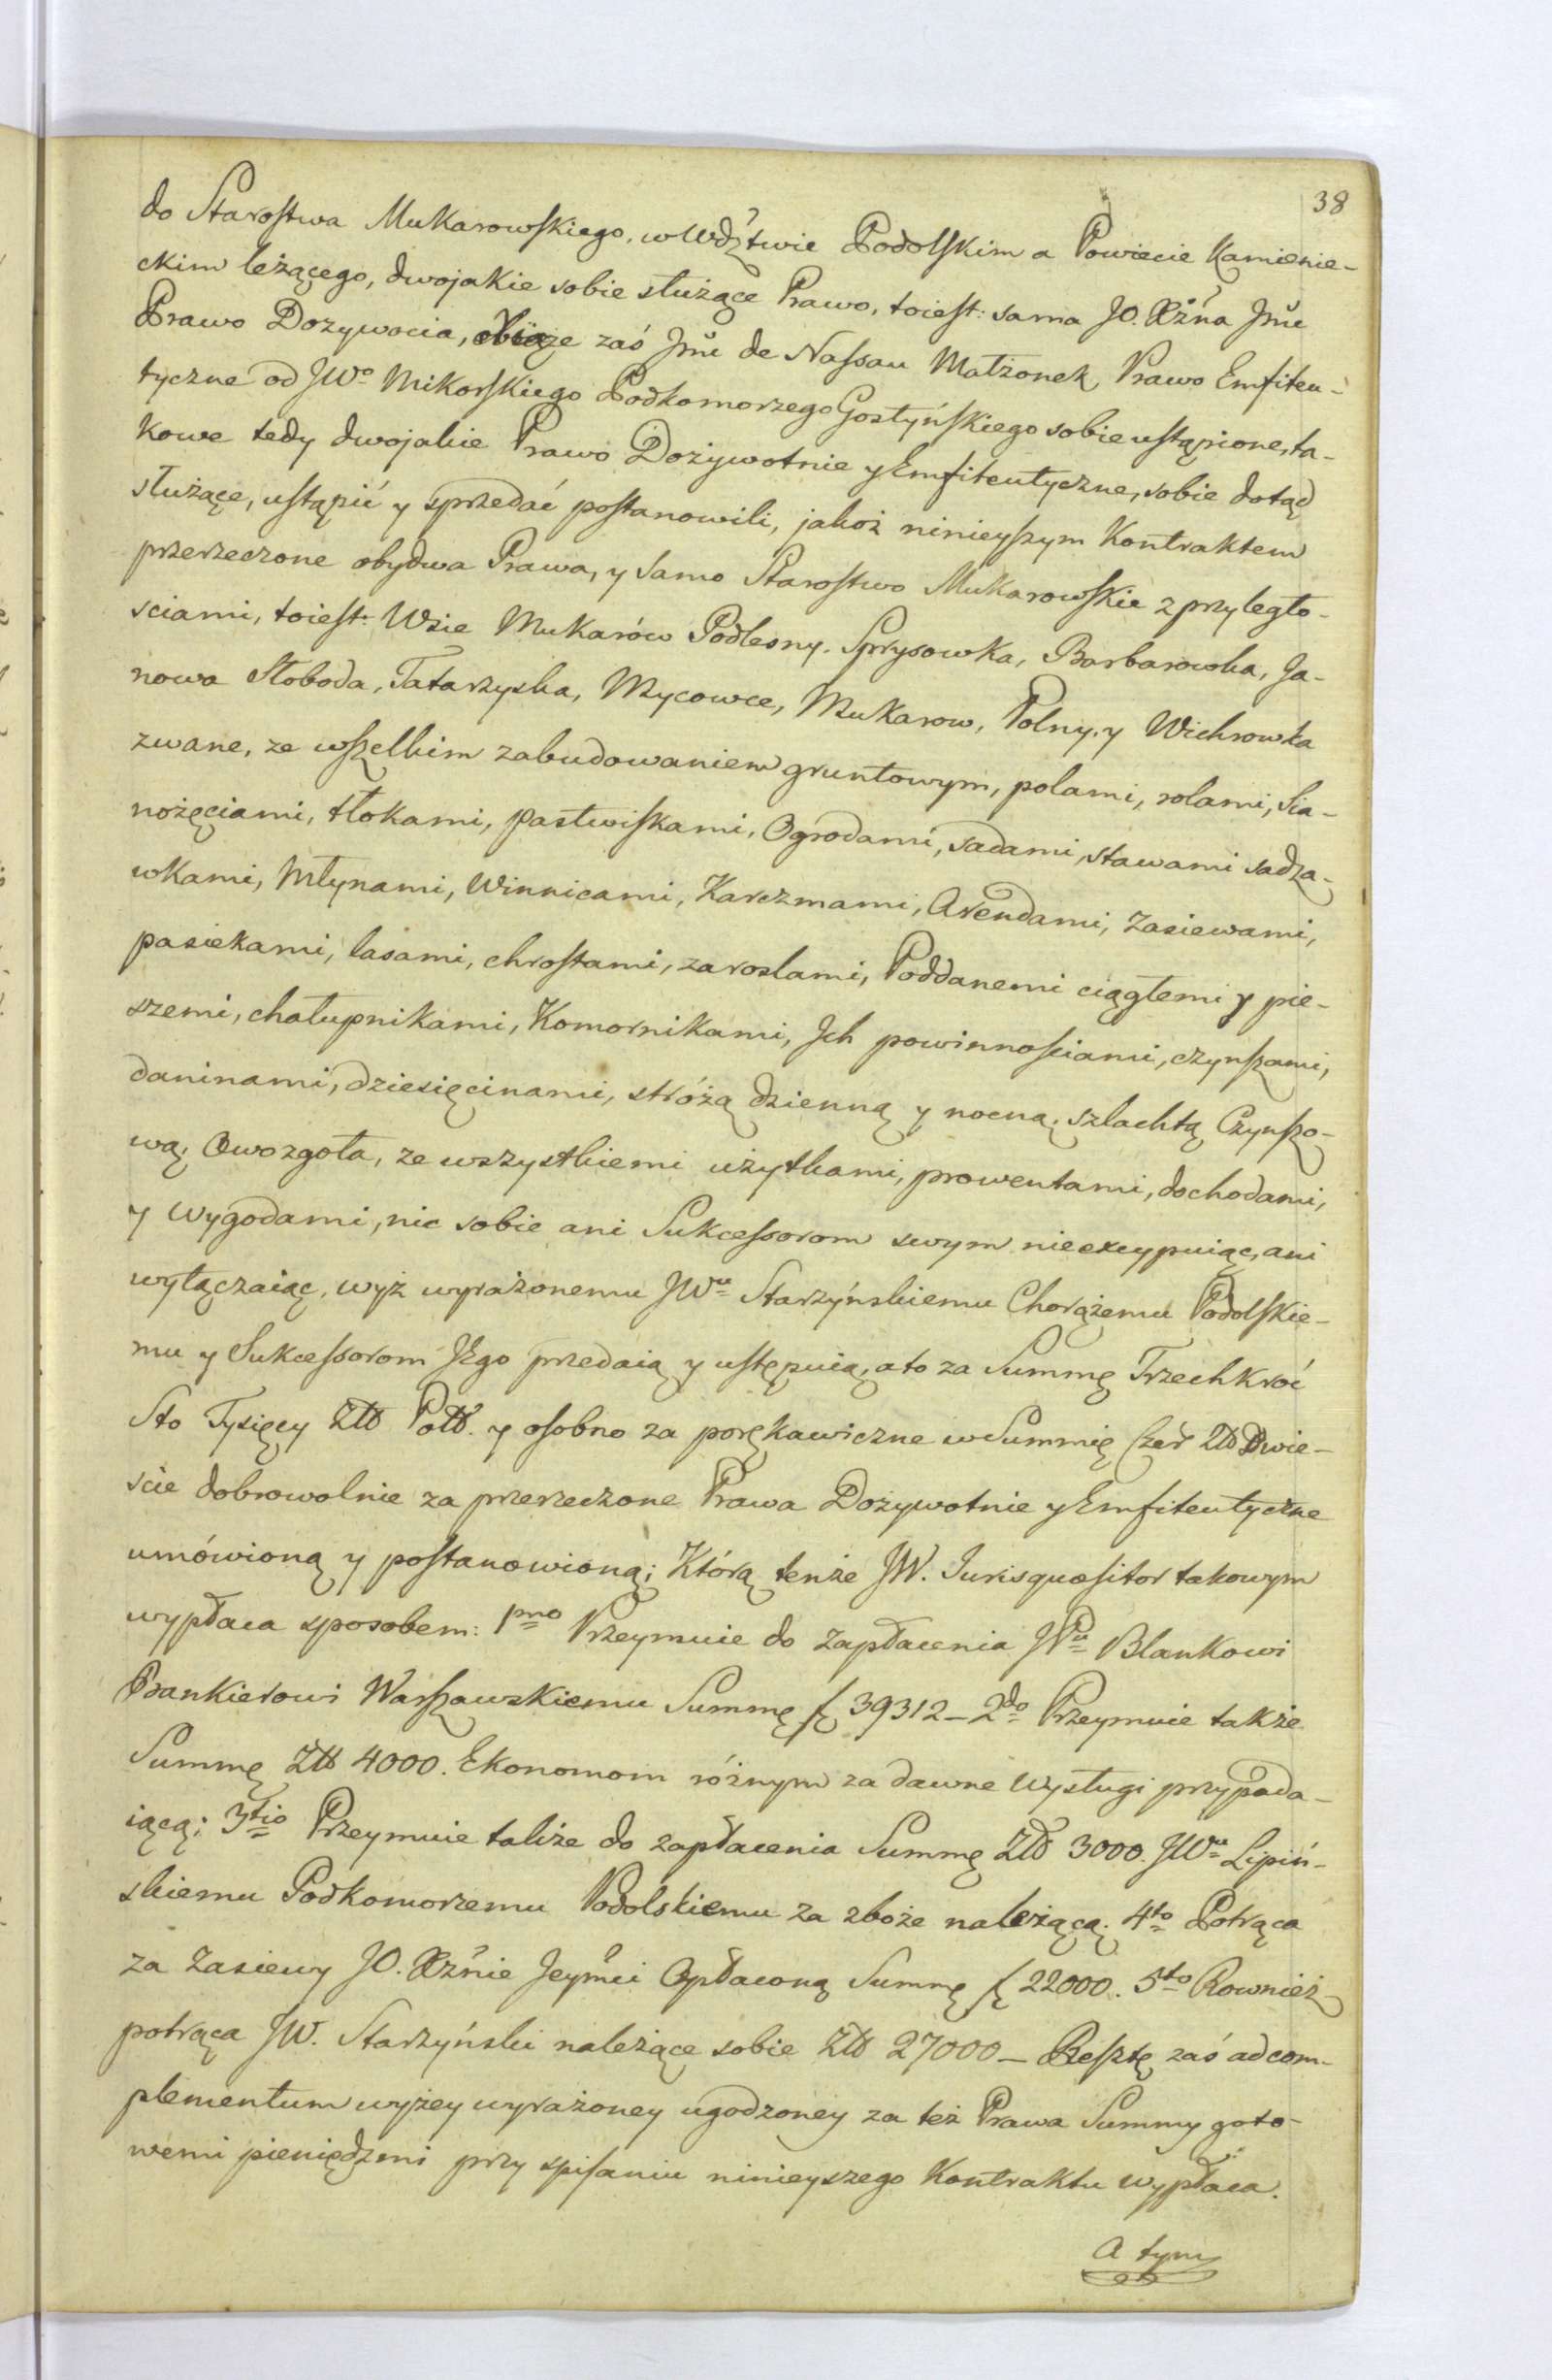 38
do Starostwa Mukarowskiego, w Wdztwie Podolskim a Powiecie Kamienie-
ckim leżącego, dwojakie sobie służące Prawo, toiest: sama JO. Xżna Jmć
Prawo Dozywocia, Xiąże zaś Jmć de Nassau Małżonek Prawo Emfiteu-
tyczne od JWo Mikorskiego Podkomorzego Gostyńskiego sobie ustąpione, ta-
kowe tedy dwojakie Prawo Dożywotnie y Emfiteutyczne, sobie dotąd
służące, ustąpić y sprzedać postanowili, jakoż ninieyszym Kontraktem
przerzeczone obydwa Prawa, y samo Starostwo Mukarowskie z przyległo-
sciami, toiest: Wsie Mukarów Podlesny. Sprysowka, Barbarowka, Ja-
nowa Słoboda, Tatarzyska, Mycowce, Mukarow, Polny, y Wichrowka
zwane, ze wszelkim zabudowaniem gruntowym, polami, rolami, Sia-
nożęciami, tłokami, pastwiskami, Ogrodami, sadami, stawami sadza-
wkami, Młynami, Winnicami, Karczmami, Arendami, Zasiewami,
pasiekami, lasami, chrostami, zaroslami, Poddanemi ciągłemi y pie-
szemi, chałupnikami, Komornikami, Ich powinnościami, czynszami,
daninami, dziesięcinami, stróżą dzienną y nocną, szlachtą Czynszo-
wą; Owozgoła, ze wszystkiemi użytkami, prowentami, dochodami,
y Wygodami, nic sobie ani Sukcessorom swym nieexcypuiąc, ani
wyłączaiąc, wyż wyrażonemu JWu Starzyńskiemu Chorążemu Podolskie-
mu y Sukcessorom Jego przedaią y ustępuią, a to za Summę Trzechkroć
Sto Tysięcy Złł Poll. y osobno za porękawiczne w Summię Czer Złł Dwie-
scie dobrowolnie za przerzeczone Prawa Dożywotnie y Emfiteutyczne
umówioną y postanowioną; Którą tenże JW. Jurisquæsitor takowym
wypłaca sposobem: 1mo Przeymuie do zapłacenia JPu Blankowi
Bankierowi Warszawskiemu Summę f 39312 – 2do Przeymuie także
Summę Złł 4000. Ekonomom różnym za dawne Wysługi przypada-
iącą; 3tio Przeymuie także do zapłacenia Summę Złł 3000. JWu Lipiń-
skiemu Podkomorzemu Podolskiemu za zboże należącą; 4to Potrąca
za Zasiewy JO. Xżnie Jeymci Opłaconą Summę f 22000. 5to Rownież
potrąca JW. Starzyński należące sobie Złł 27000 – Resztę zaś ad com-
plementum wyżey wyrażoney ugodzoney za też Prawa Summy goto-
wemi pieniędzmi przy spisaniu ninieyszego Kontraktu wypłaca.
A tym